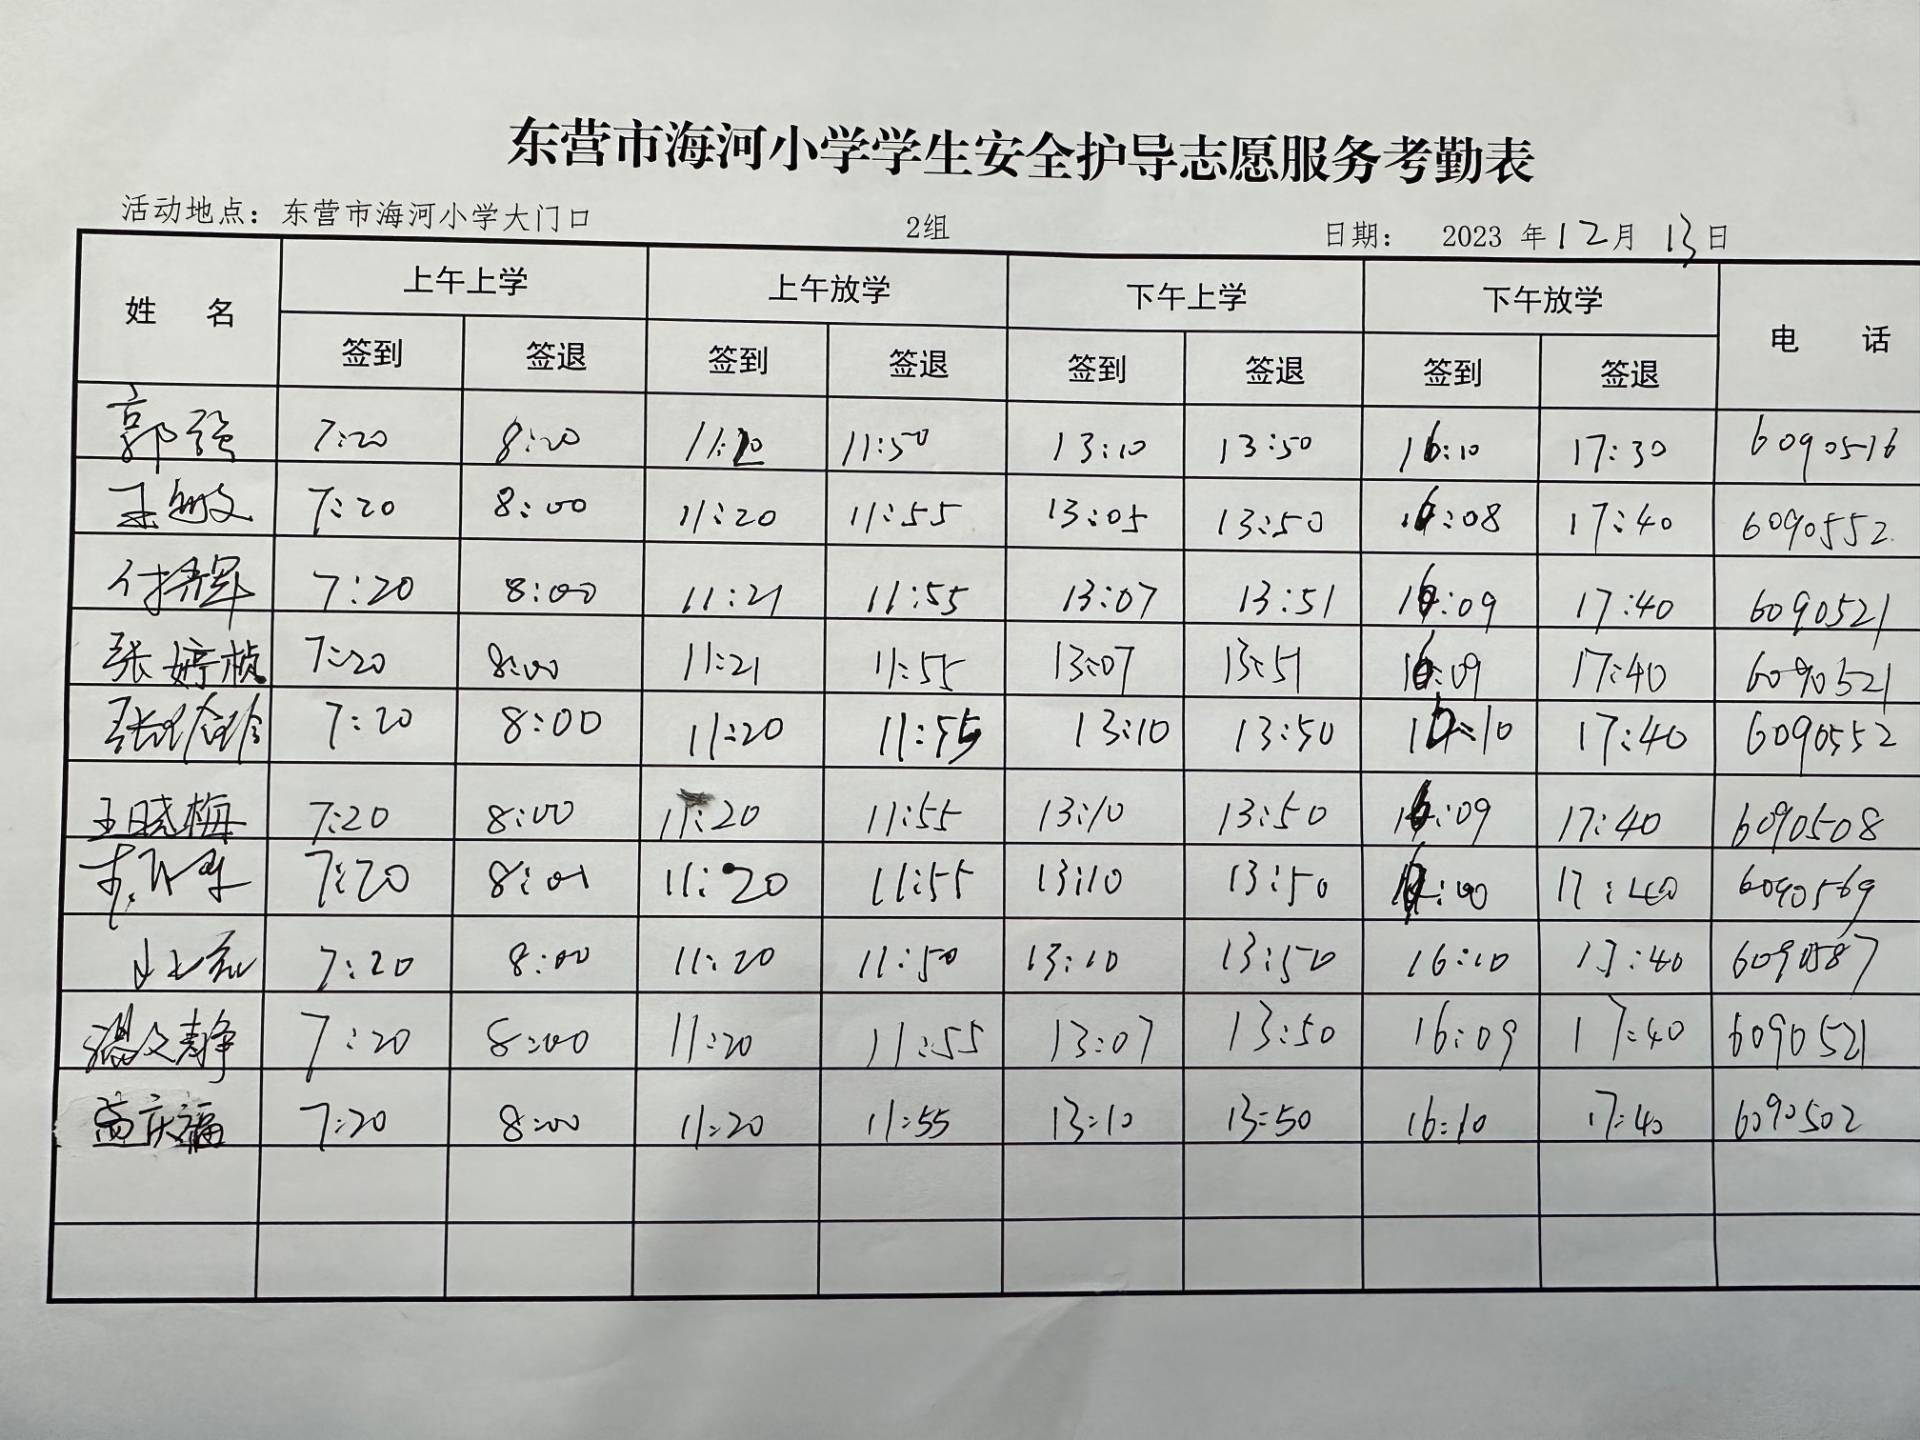 东营市海河小学学生安全护导志愿服务考勤表
活动地点：东营市海河小学大门口 2组 日期： 2023 年 12 月 13 日
姓 名 上午上学 上午放学 下午上学 下午放学 电 话
签到 签退 签到 签退 签到 签退 签到 签退
郭强 7:20 8:20 11:20 11:50 13:10 13:50 16:10 17:30 6090516
7:20 8:00 11:20 11:55 13:05 13:50 16:08 17:40 6090552
7:20 8:00 11:21 11:55 13:07 13:51 16:09 17:40 6090521
张婷桢 7:20 8:00 11:21 11:55 13:07 13:51 16:09 17:40 6090521
7:20 8:00 11:20 11:55 13:10 13:50 16:10 17:40 6090552
王晓梅 7:20 8:00 11:20 11:55 13:10 13:50 16:09 17:40 6090508
7:20 8:01 11:20 11:55 13:10 13:50 17:40 6090569
7:20 8:00 11:20 11:50 13:10 13:50 16:10 17:40 6090587
温文静 7:20 8:00 11:20 11:55 13:07 13:50 16:09 17:40 6090521
孟庆福 7:20 8:00 11:20 11:55 13:10 13:50 16:10 17:40 6090502